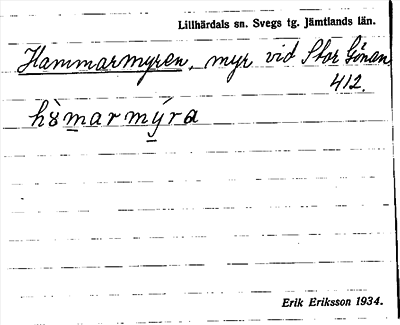 Lillhärdals sn. Svegs tg. Jämtlands län.
Hammarmyren, myr vid Stor Gönan
412.
hòmarmýra
Erik Eriksson 1934.